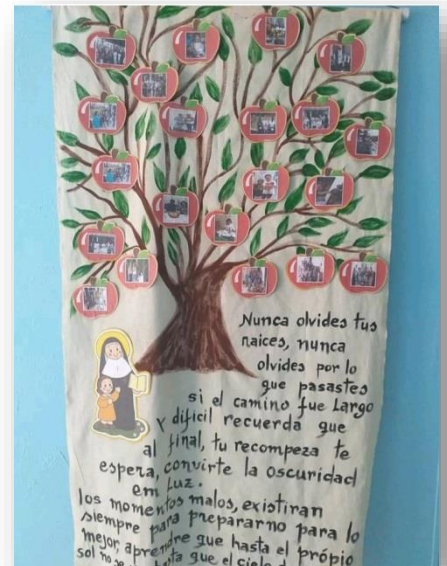 Nunca olvides tus
raices, nunca
olvides por lo
que pasastes
si el camino fue Largo
Y dificil recuerda que
al final, tu recompeza te
espera, convirte la oscuridad
em Luz.
los momentos malos, existiran
siempre para prepararno para lo
mejor, aprendre que hasta el própio
sol no se que el cielo